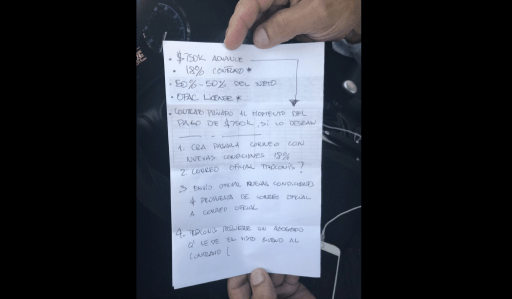 • $750K ADVANCE
• 18% CONTRATO *
• 50% - 50% DEL NETO
• OFAC LICENSE *
• CONTRATO PRIVADO AL MOMENTO DEL
PAGO DE $750K, SI LO DESEAN
1. CON
NUEVAS CONDICIONES 18%
2. CORREO OFICIAL ?
3 ENVIO OFICIAL NUEVAS CONDICIONES
DE CORREO OFICIAL
A CORREO OFICIAL
4. UN ABOGADO
Q' LE DE EL VISTO BUENO AL
CONTRATO